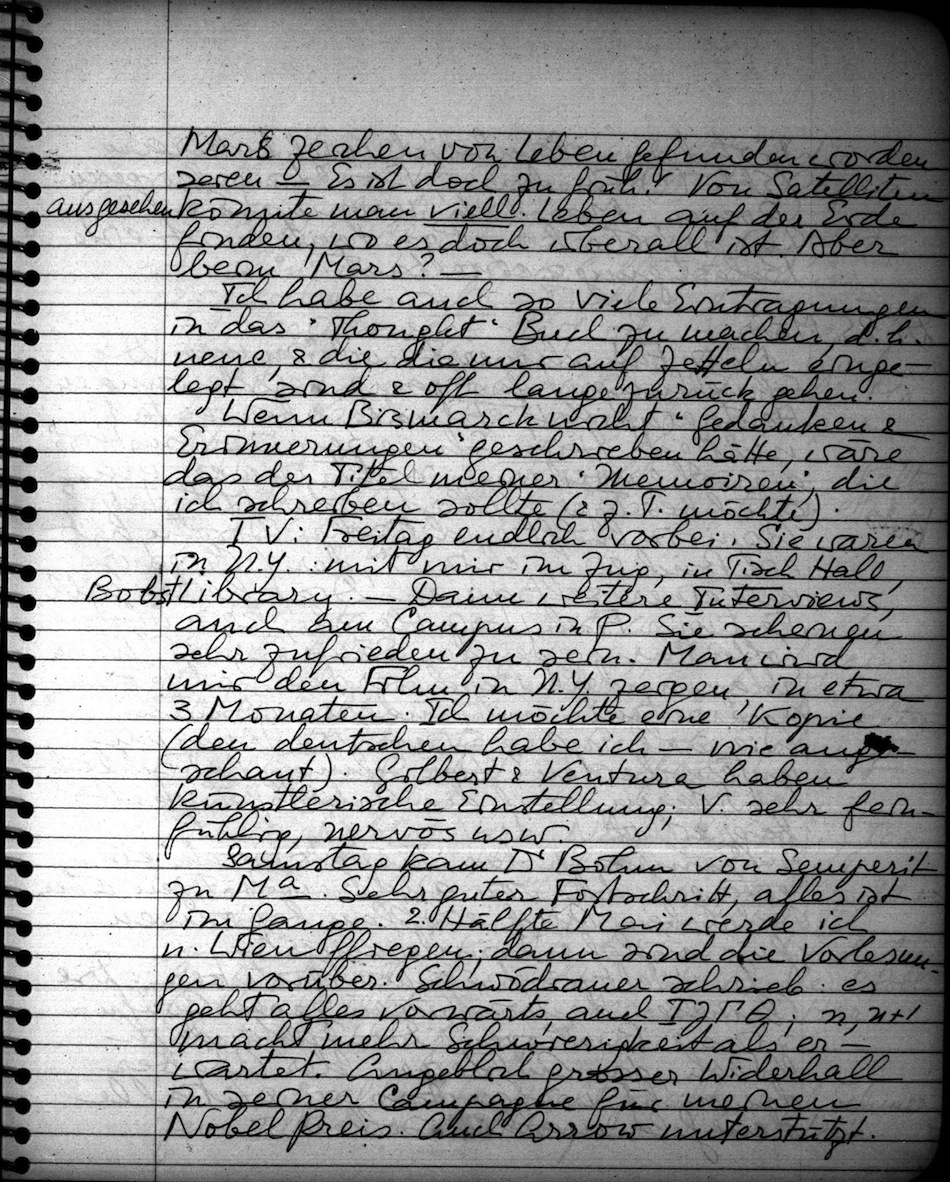 Mars Zeichen von Leben gefunden worden
seien — Es ist doch zu früh! Von Satelliten
aus gesehen könnte man viell. Leben auf der Erde
finden, wo es doch überall ist. Aber
beim Mars? —
Ich habe auch so viele Eintragungen
in das "Thought" Buch zu machen, d.h.
neue, & die die nur auf Zetteln einge-
legt sind & oft lange zurück gehen.
Wenn Bismarck nicht "Gedanken &
Erinnerungen" geschrieben hätte, wäre
das der Titel meiner "Memoiren", die
ich schreiben sollte (& z.T. möchte).
TV: Freitag endlich vorbei. Sie waren
in N.Y. mit mir im Zug, in Tisch Hall,
Bobst Library. — Dann weitere Interviews,
auch am Campus in P. Sie scheinen
sehr zufrieden zu sein. Man wird
mir den Film in N.Y. zeigen, in etwa
3 Monaten. Ich möchte eine Kopie
(den deutschen habe ich — nie ange-
schaut). Gilbert & Ventura haben
künstlerische Einstellung; V. sehr fein-
fühlig, nervös usw.
Samstag kam Dr Böhm von Semperit
zu Ma. Sehr guter Fortschritt, alles ist
im Gange. 2. Hälfte Mai werde ich
n. Wien fliegen; dann sind die Vorlesun-
gen vorüber. Schwödiauer schrieb: es
geht alles vorwärts, auch IJГΘ; n, n+1
macht mehr Schwierigkeit als er-
wartet. Angeblich grosser Widerhall
in seiner Campagne für meinen
Nobel Preis. Auch Arrow unterstützt.